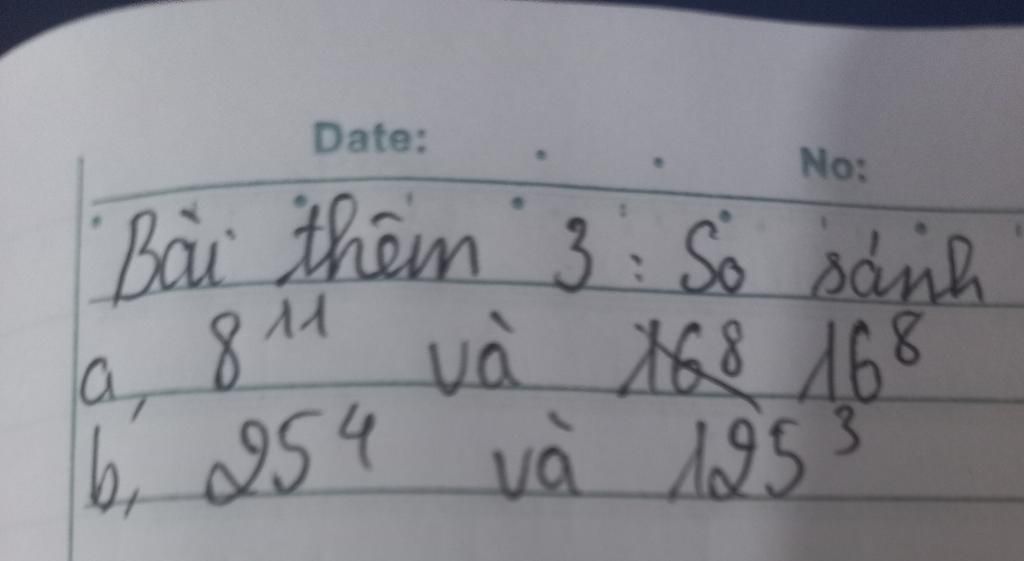 Date: No:
Bài thêm 3 : So sánh
a, 8¹¹ và 16⁸ 16⁸
b, 25⁴ và 125³